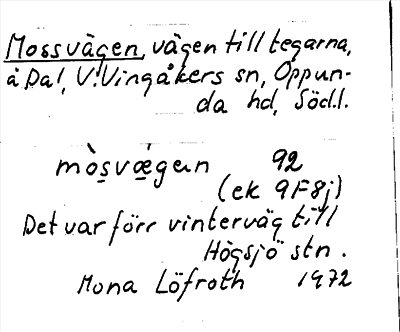 Mossvägen, vägen till tegarna,
å Dal, V. Vingåkers sn, Oppun-
da hd, Södl.
mòs̲væ̲gαn 92
(ek 9F8j)
Det var förr vinterväg till
Högsjö stn.
Mona Löfroth 1972